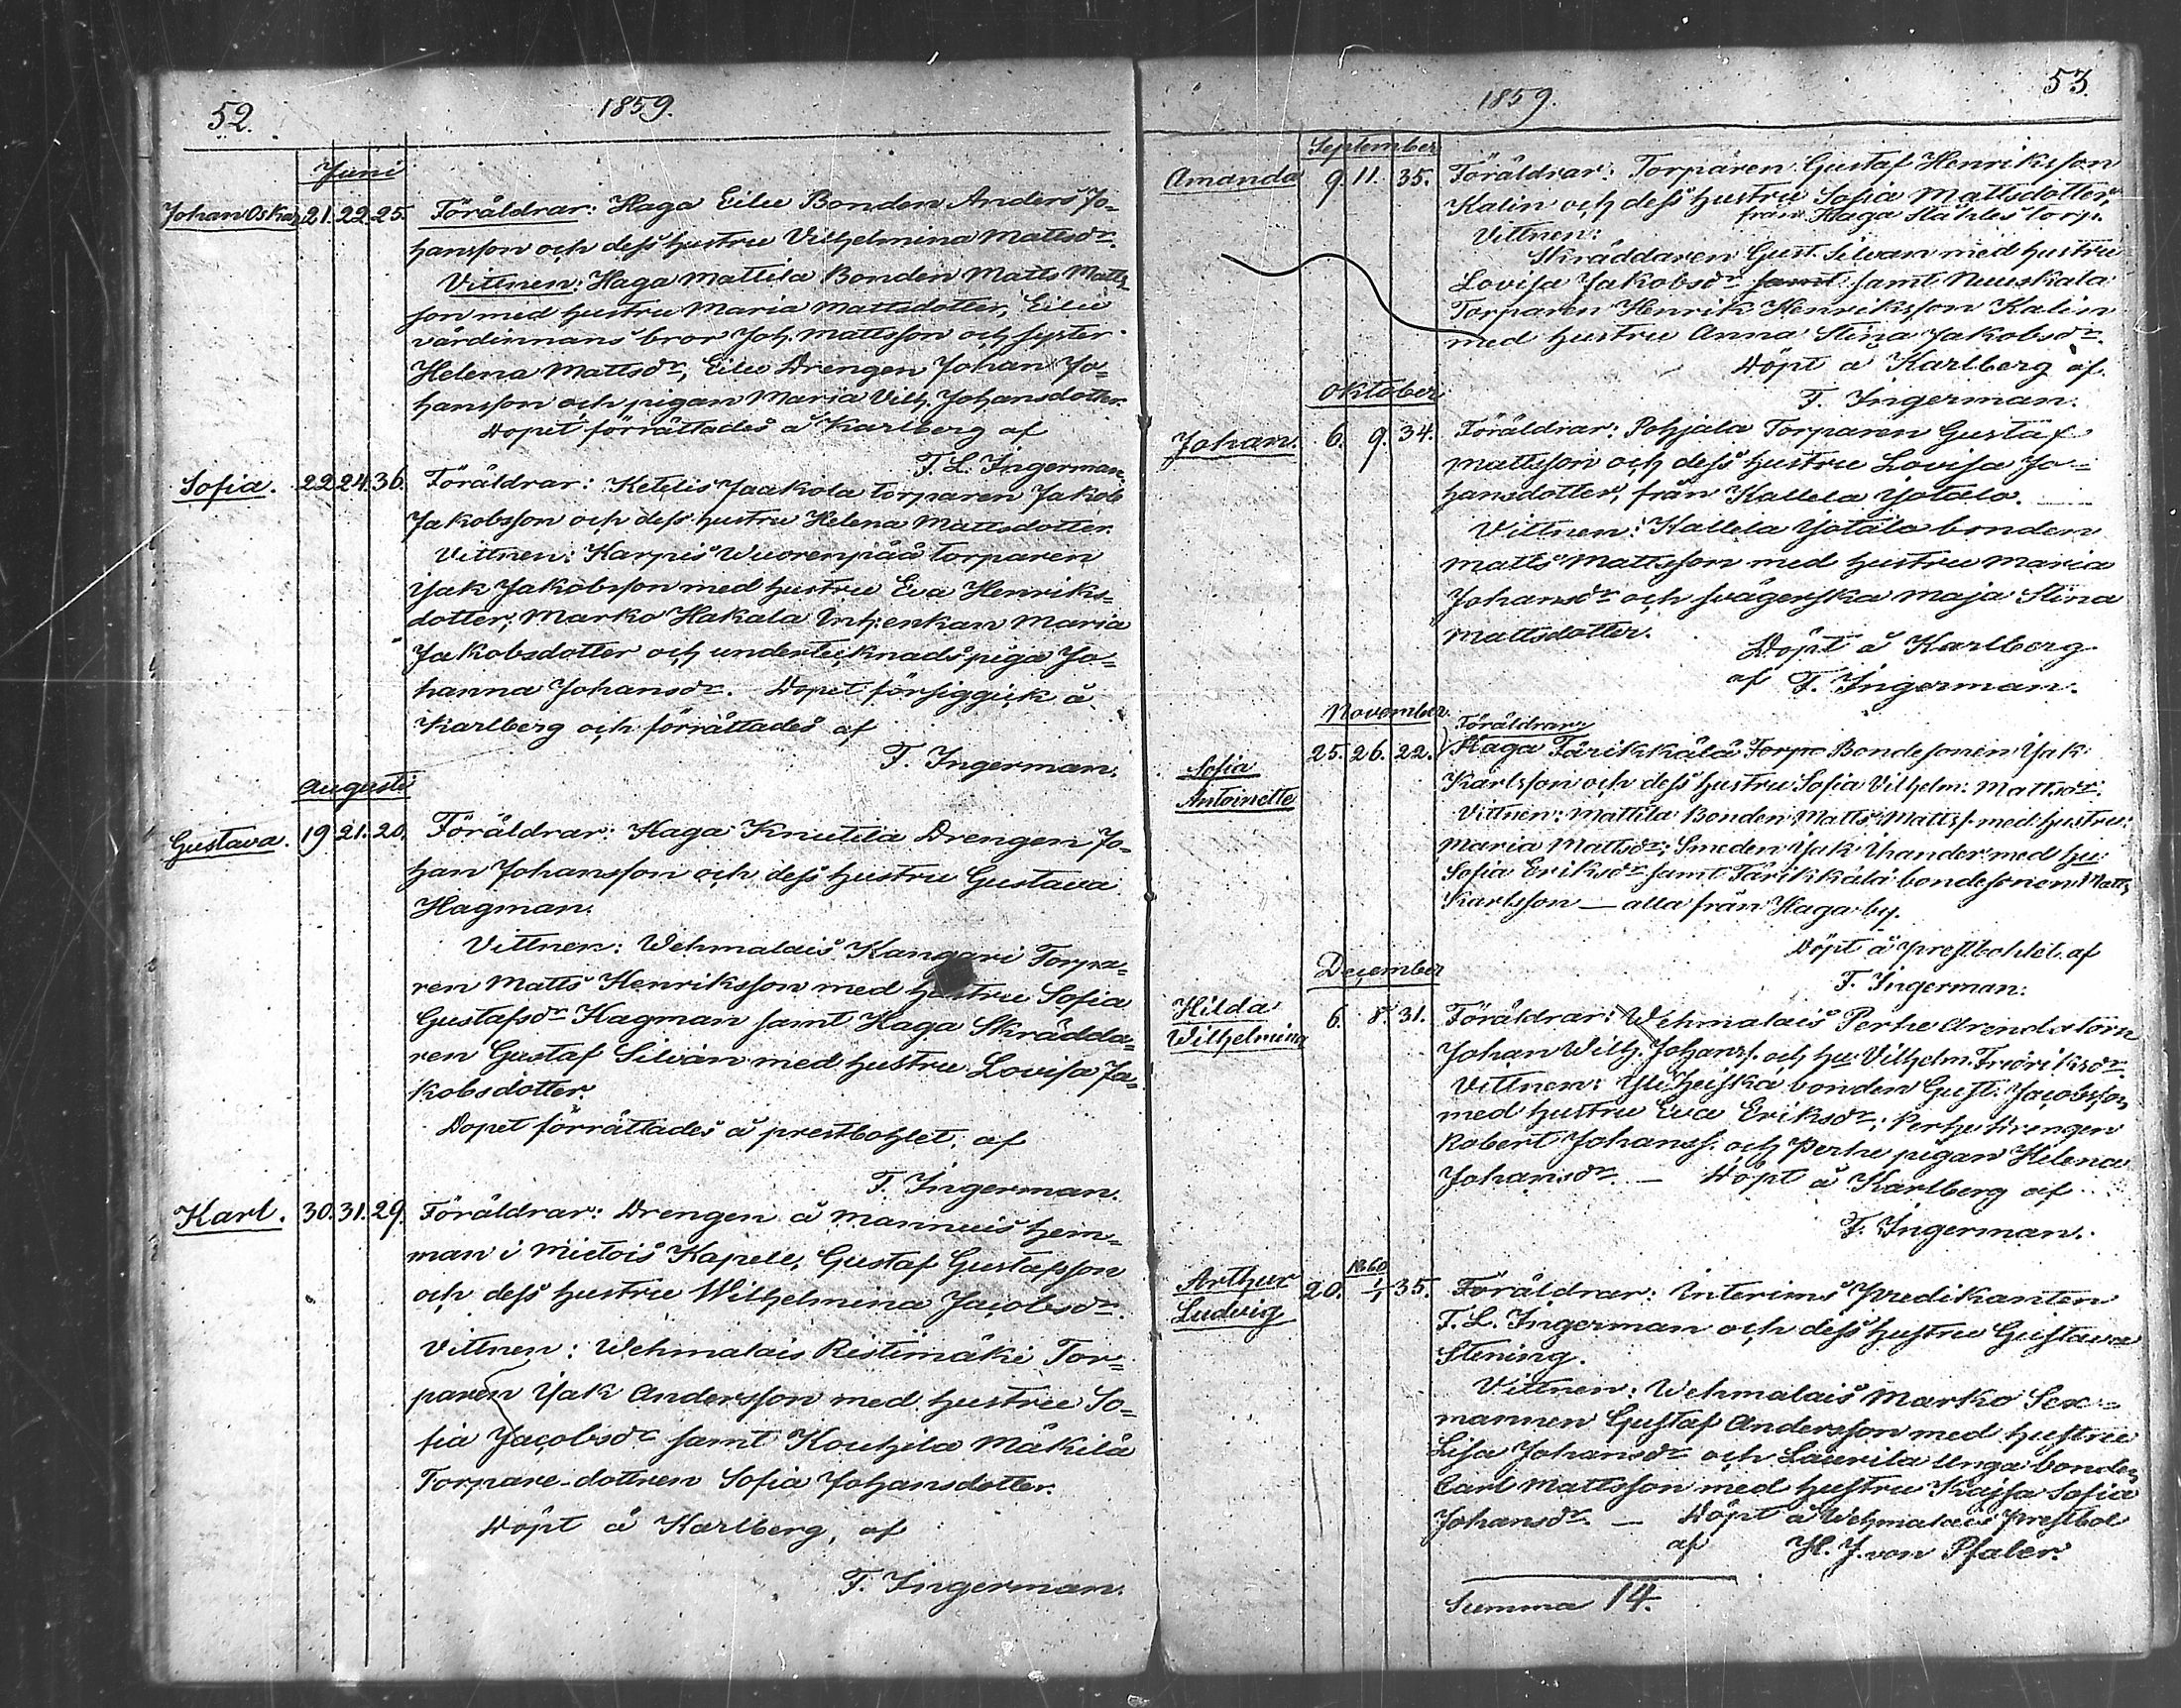 52.
1859.
Juni
Johan Oskar 21. 22. 25. Föräldrar: Haga Eilu Bonden Anders Jo-
hansson och dess hustru Vilhelmina Mattsdr.
Vittnen: Haga Mattila Bonden Matts Matts-
son med hustru Maria Mattsdotter, Eilu
värdinnans bror Joh. Mattsson och syster
Helena Mattsdr, Eilu Drengen Johan Jo-
hansson och pigan Maria Vilh. Johansdotter.
Dopet förrättades å Karlberg af
T. L. Ingerman.
Sofia. 22 24. 36. Föräldrar: Ketelis Jaakola torparen Jakob
Jakobsson och dess hustru Helena Mattsdotter.
Vittnen: Karpis Wuorenpää torparen
Isak Jakobsson med hustru Eva Henriks-
dotter, Marko Hakala Inh:enkan Maria
Jakobsdotter och undertecknads piga Jo-
hanna Johansdr. Dopet försiggick å
Karlberg och förrättades af
T. Ingerman.
Augusti
Gustava. 19 21. 20. Föräldrar: Haga Knutila Drengen Jo-
han Johansson och dess hustru Gustava
Hagman.
Vittnen: Wehmalais Kangari Torpa-
ren Matts Henriksson med hustru Sofia
Gustafsdr Hagman samt Haga Skrädda-
ren Gustaf Silvan med hustru Lovisa Ja-
kobsdotter.
Dopet förrättades å prestbohlet, af
T. Ingerman.
Karl. 30. 31. 29. Föräldrar: Drengen å Mannuis hem-
man i Mietois Kapell, Gustaf Gustafsson
och dess hustru Wilhelmina Jacobsdr.
Vittnen: Wehmalais Ristimäki Tor-
paren Isak Andersson med hustru So-
fia Jacobsdr samt Kouhila Mäkilä
Torpare-dottren Sofia Johansdotter.
Döpt å Karlberg, af
T. Ingerman.
53.
1859.
September
Amanda 9. 11. 35. Föräldrar: Torparen Gustaf Henriksson
Kalin och dess hustru Sofia Mattsdotter,
från Haga Ståhles torp.
Vittnen:
Skräddaren Gust. Silvan med hustru
Lovisa Jakobsdr samt samt Nuuskala
Torparen Henrik Henriksson Kalin
med hustru Anna Stina Jakobsdr.
Döpt å Karlberg af
T. Ingerman.
Oktober
Johan. 6. 9. 34. Föräldrar: Pohjala Torparen Gustaf
Mattsson och dess hustru Lovisa Jo-
hansdotter, från Kallela Isotalo.
Vittnen: Kallela Isotalo bonden
Matts Mattsson med hustru Maria
Johansdr och svägerska Maja Stina
Mattsdotter.
Döpt å Karlberg
af T. Ingerman.
November
Föräldrar:
Sofia Antoinette 25. 26. 22. Haga Tärikkälä Torp Bondesonen Isak
Karlsson och dess hustru Sofia Vilhelm: Mattsdr.
Vittnen: Mattila Bonden Matts Mattss. med hustru:
Maria Mattsdr; Smeden Isak Thander med hu:
Sofia Eriksdr samt Tärikkälä bondesonen Matts
Karlsson — alla från Haga by.
Döpt å prestbohlet af
T. Ingerman.
December
Hilda Wilhelmina 6. 8. 31. Föräldrar: Wehmalais Perhe Arendatorn
Johan Wilh. Johanss. och hu: Vilhelm. Fridriksdr.
Vittnen: Yliheiska bonden Gust. Jacobsson
med hustru Eva Eriksdr; Perhe Drengen
Robert Johanss. och Perhe pigan Helena
Johansdr. — Döpt å Karlberg af
T. Ingerman.
Arthur Ludvig 20. 1860 1/1 35. Föräldrar: Interims Predikanten
T. L. Ingerman och dess hustru Gustava
Stening.
Vittnen: Wehmalais Marko Sex-
mannen Gustaf Andersson med hustru
Lisa Johansdr och Laurila unga bonden
Carl Mattsson med hustru Kajsa Sofia
Johansdr. — Döpt å Wehmalais Prestbol
af H. J. von Pfaler.
Summa 14.